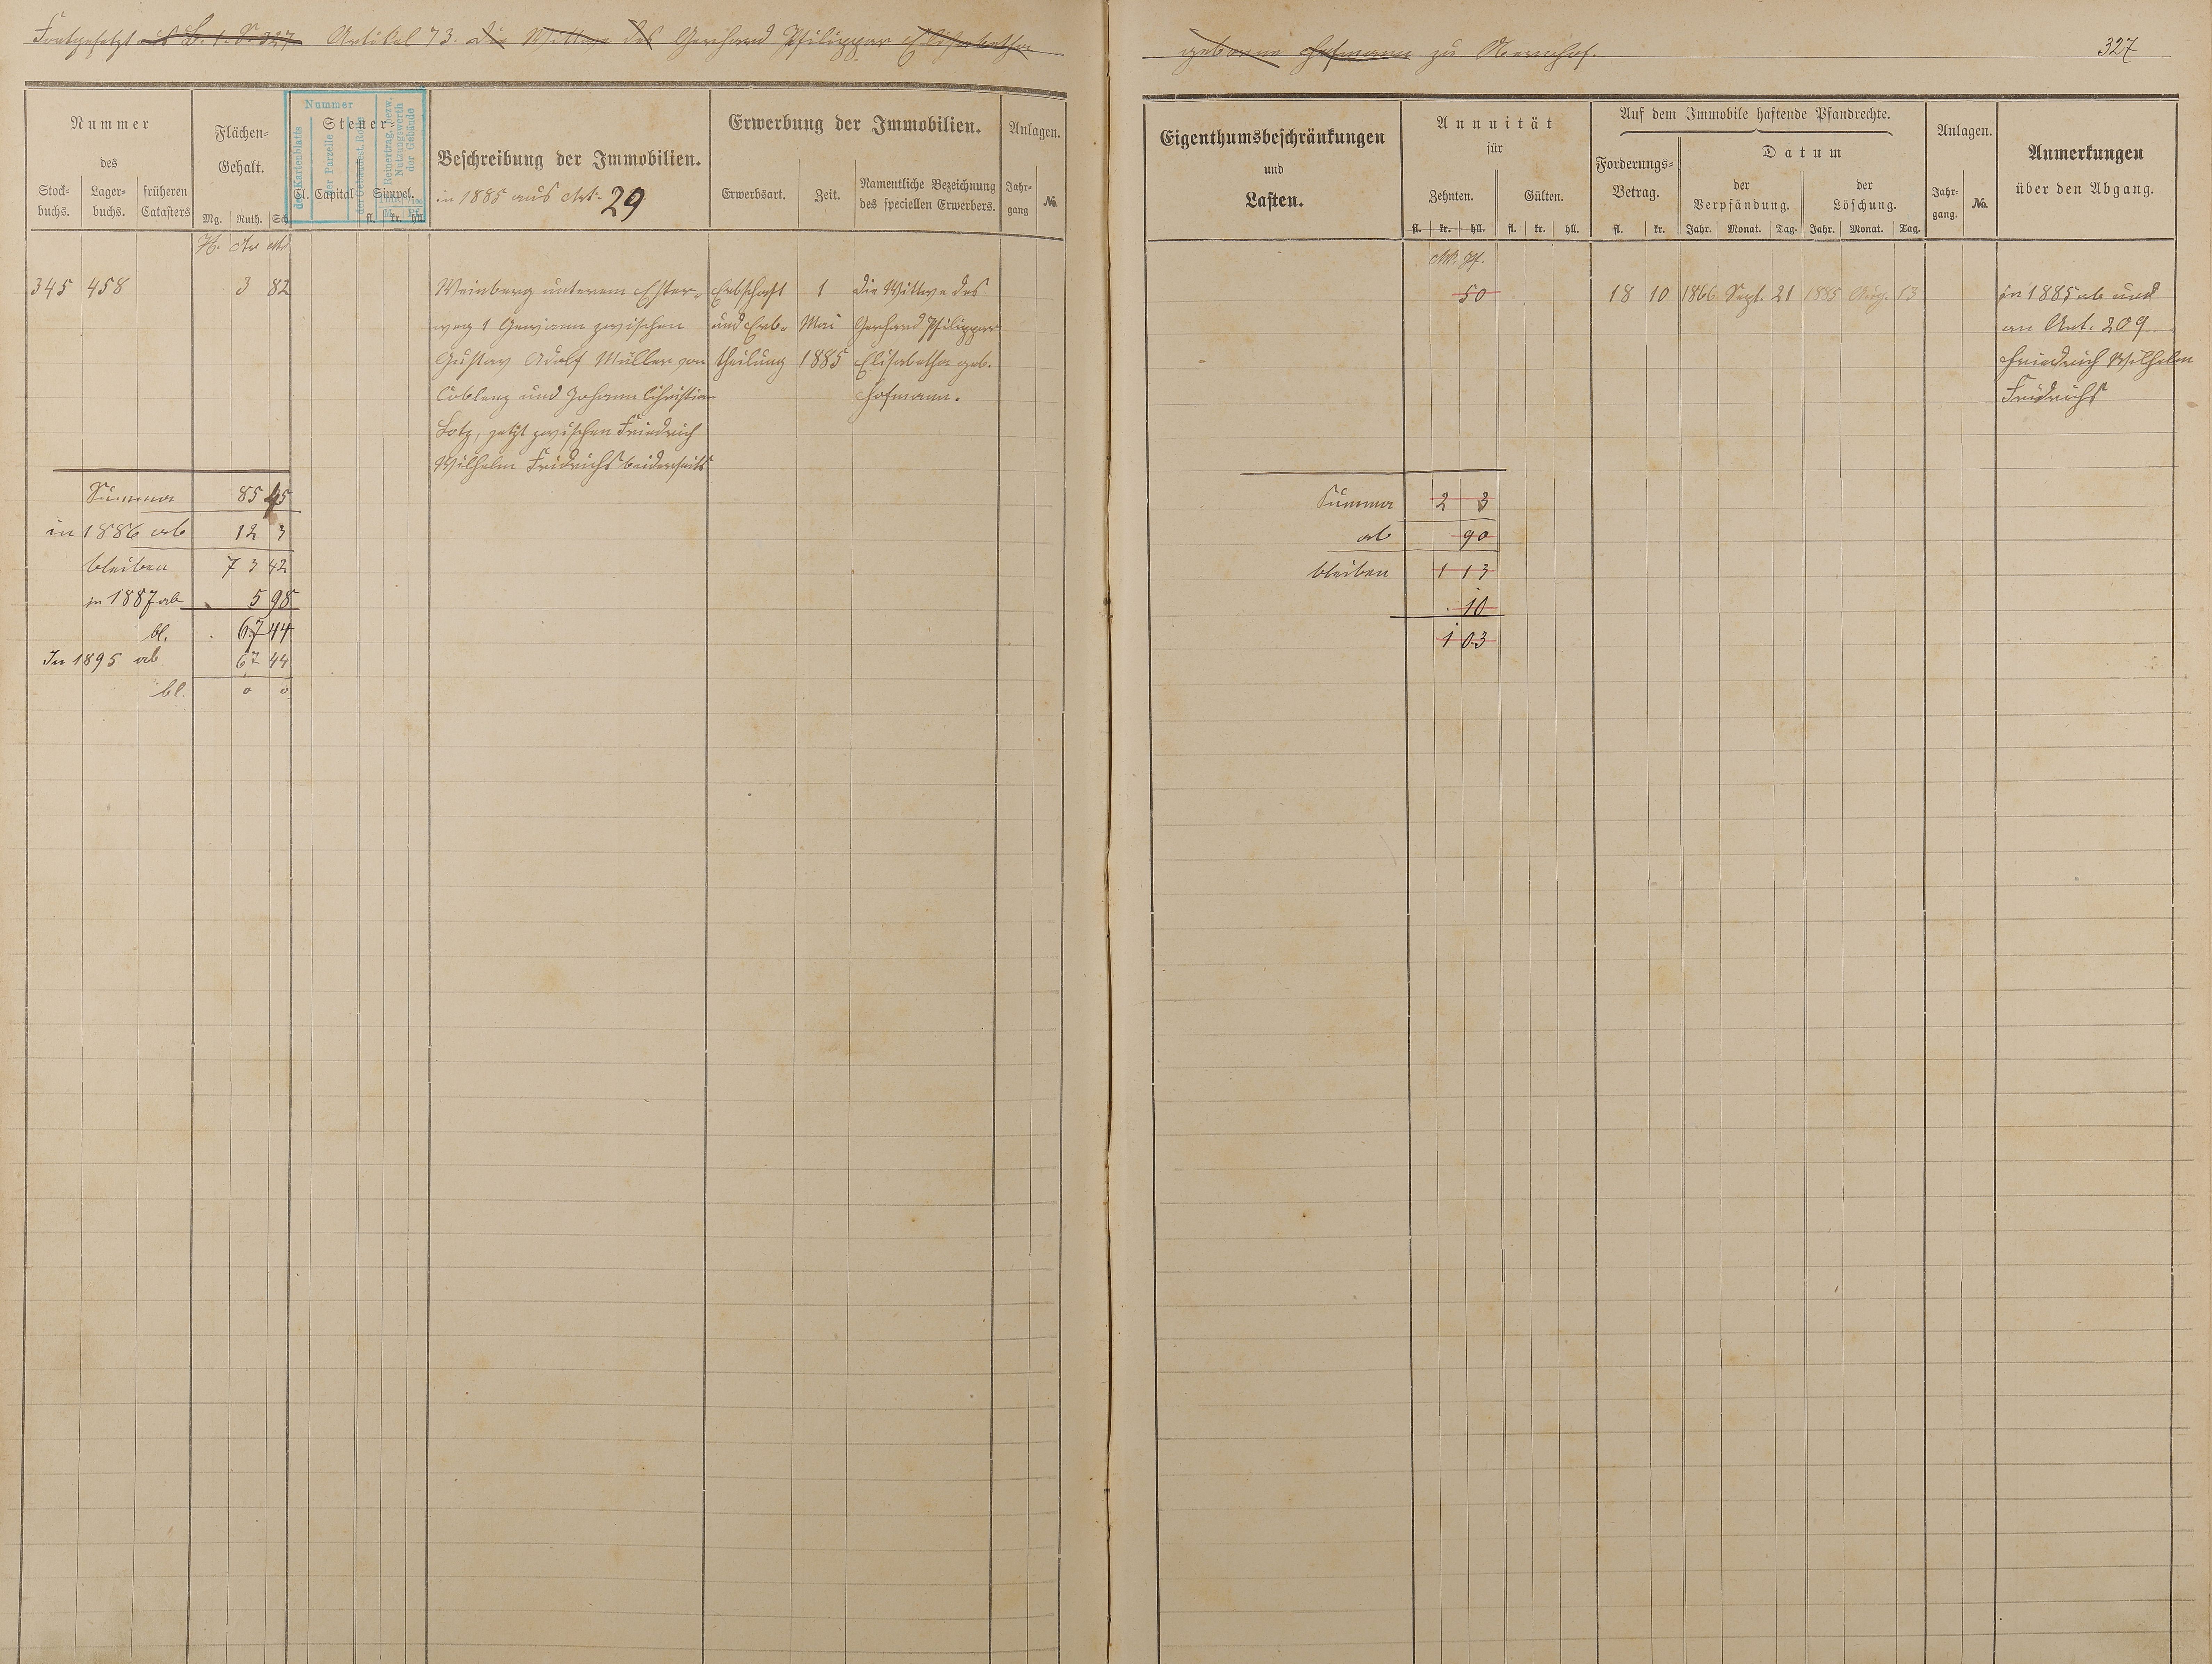 Fortgesetzt aus B. 1. S. 327. Artikel 73. die Wittwe des Gerhard Philippar Elisabetha
geborne Hofmann zu Obernhof.
327
Nummer
des
Stock-
buchs.
Lager-
buchs.
früheren
Catasters
Flächen-
Gehalt.
Mg. Ruth. Sch.
Steuer-
Cl. Capital Simpel.
fl. kr. hll.
Nummer
des Kartenblatts
der Parzelle
der Gebäudest. Rolle
Reinertrag, bezw.
Nutzungswerth
der Gebäude
Beschreibung der Immobilien.
in 1885 aus Art. 29
Erwerbung der Immobilien.
Erwerbsart.
Zeit.
Namentliche Bezeichnung
des speciellen Erwerbers.
Anlagen.
Jahr-
gang
No.
H. Ar Mr
345 458 3 82
Weinberg unterem Ester-
weg 1 Gewann zwischen
Gustav Adolf Müller von
Coblenz und Johann Christian
Lotz, jetzt zwischen Friedrich
Wilhelm Fridrichs beiderseits
Erbschaft
und Erb-
theilung
1
Mai
1885
die Wittwe des
Gerhard Philippar
Elisabetha geb.
Hofmann.
Summa 85 45
in 1886 ab 12 3
bleiben 73 42
in 1887 ab 5 98
bl. 67 44
In 1895 ab 67 44
bl. 0 0
Eigenthumsbeschränkungen
und
Lasten.
Annuität
für
Zehnten.
Gülten.
fl. kr. hll. fl. kr. hll.
Auf dem Immobile haftende Pfandrechte.
Forderungs-
Betrag.
fl. kr.
Datum
der
Verpfändung.
Jahr. Monat. Tag.
der
Löschung.
Jahr. Monat. Tag.
Anlagen.
Jahr-
gang.
No.
Anmerkungen
über den Abgang.
Mk. Pf.
50 18 10 1866 Sept. 21 1885 Aug. 13
in 1885 ab und
an Art. 209
Friedrich Wilhelm
Fridrichs
Summa 2 3
ab 90
bleiben 1 13
10
1 03